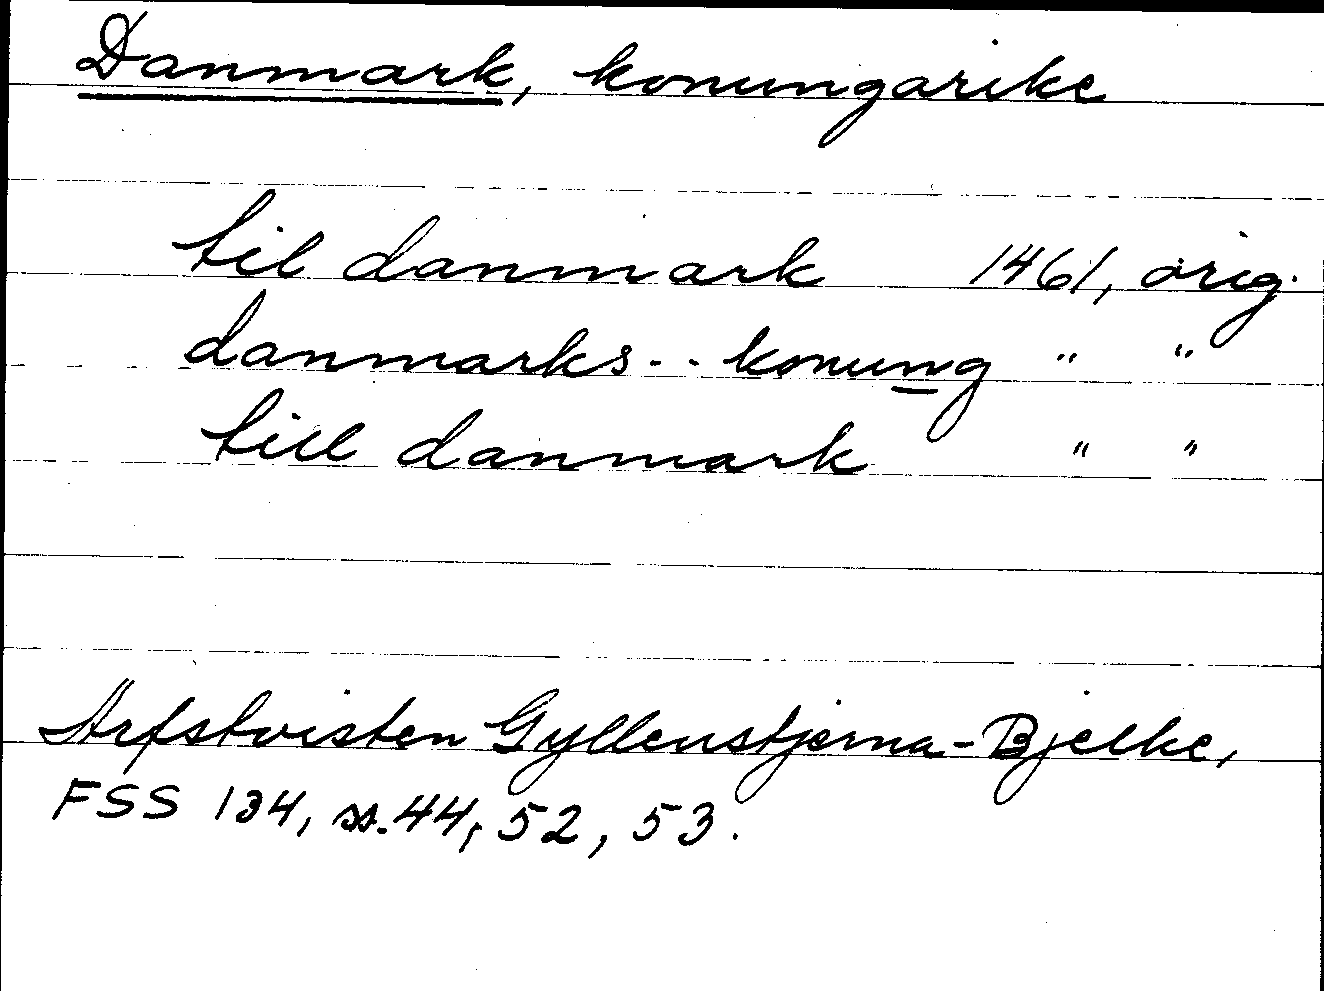 Danmark, konungarike
til danmark 1461, orig.
danmarks - - konung " "
till danmark " "
Arfstvisten Gyllenstjerna-Bjelke,
FSS 134, ss. 44, 52, 53.